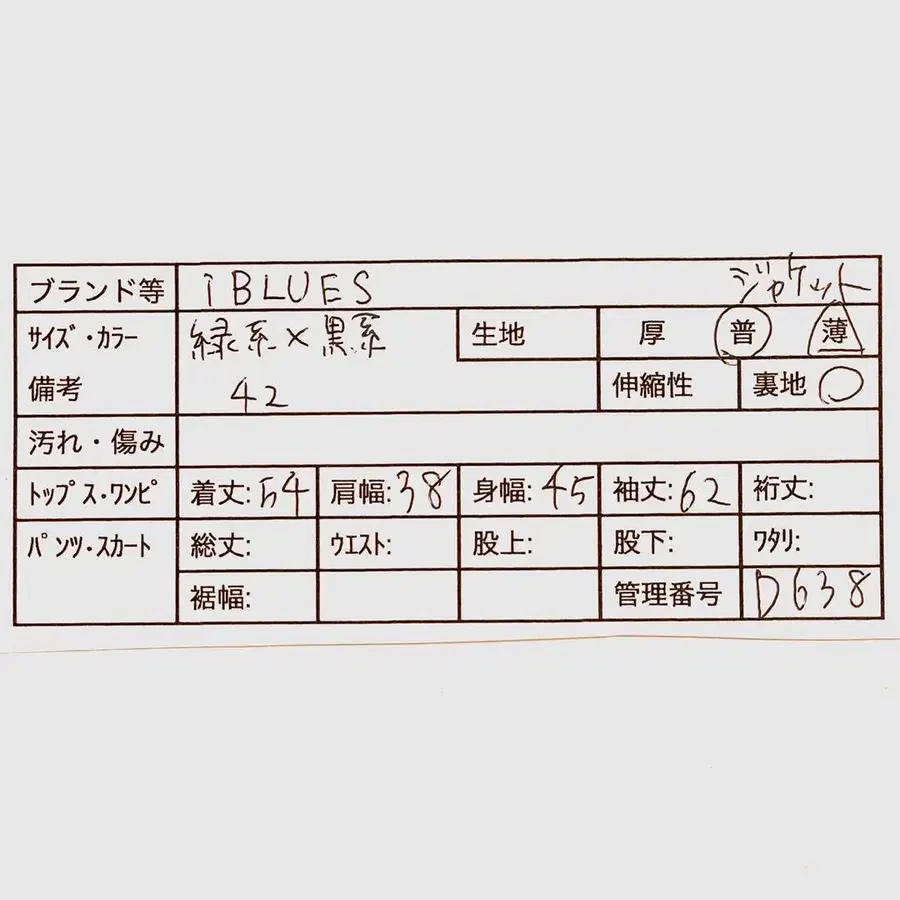 ブランド等 iBLUES ジャケット
サイズ・カラー 緑系×黒系 生地 厚 普 薄
備考 42 伸縮性 裏地 ○
汚れ・傷み
トップス・ワンピ 着丈:54 肩幅:38 身幅:45 袖丈:62 裄丈:
パンツ・スカート 総丈: ウエスト: 股上: 股下: ワタリ:
裾幅: 管理番号 D638